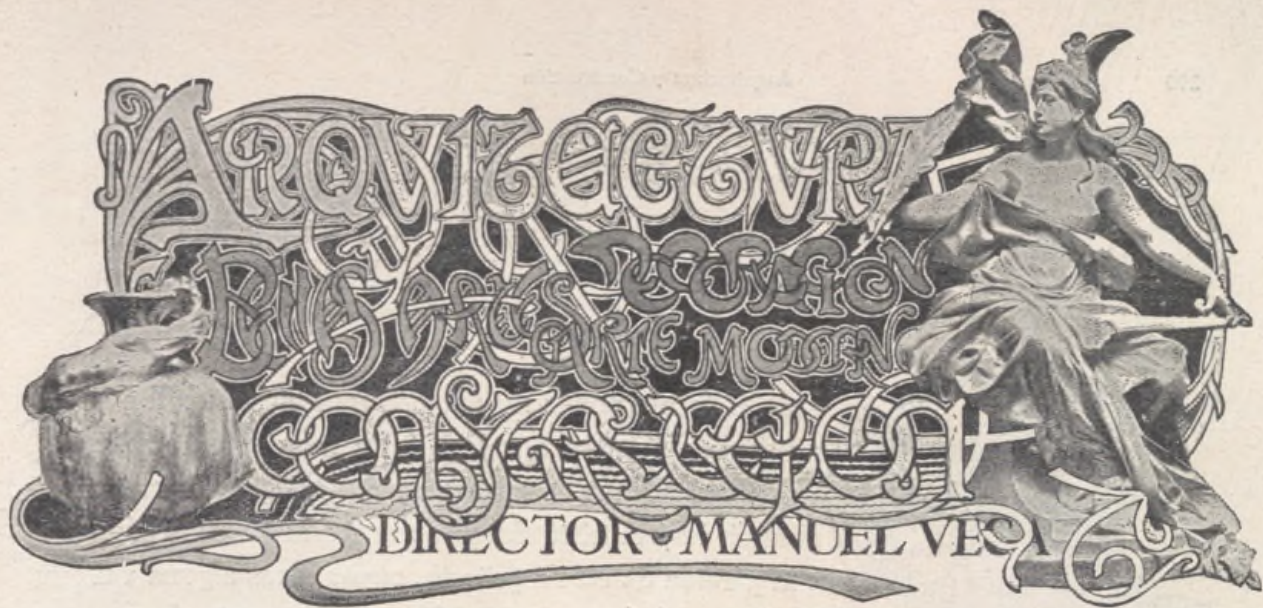 ARQVITECTVRA
BELLAS ARTES DECORACION
ARTE MODERNO
CONSTRVCCION
DIRECTOR MANUEL VEGA